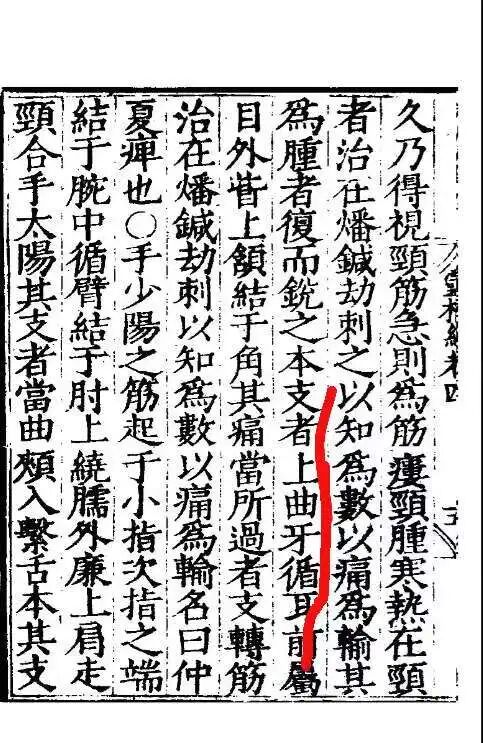 久乃得視頸筋急則爲筋瘻頸腫寒熱在頸
者治在燔鍼劫刺之以知爲數以痛爲輸其
爲腫者復而銳之本支者上曲牙循耳前屬
目外眥上額結于角其痛當所過者支轉筋
治在燔鍼劫刺以知爲數以痛爲輸名曰仲
夏痺也○手少陽之筋起于小指次指之端
結于腕中循臂結于肘上繞臑外廉上肩走
頸合手太陽其支者當曲頰入繫舌本其支